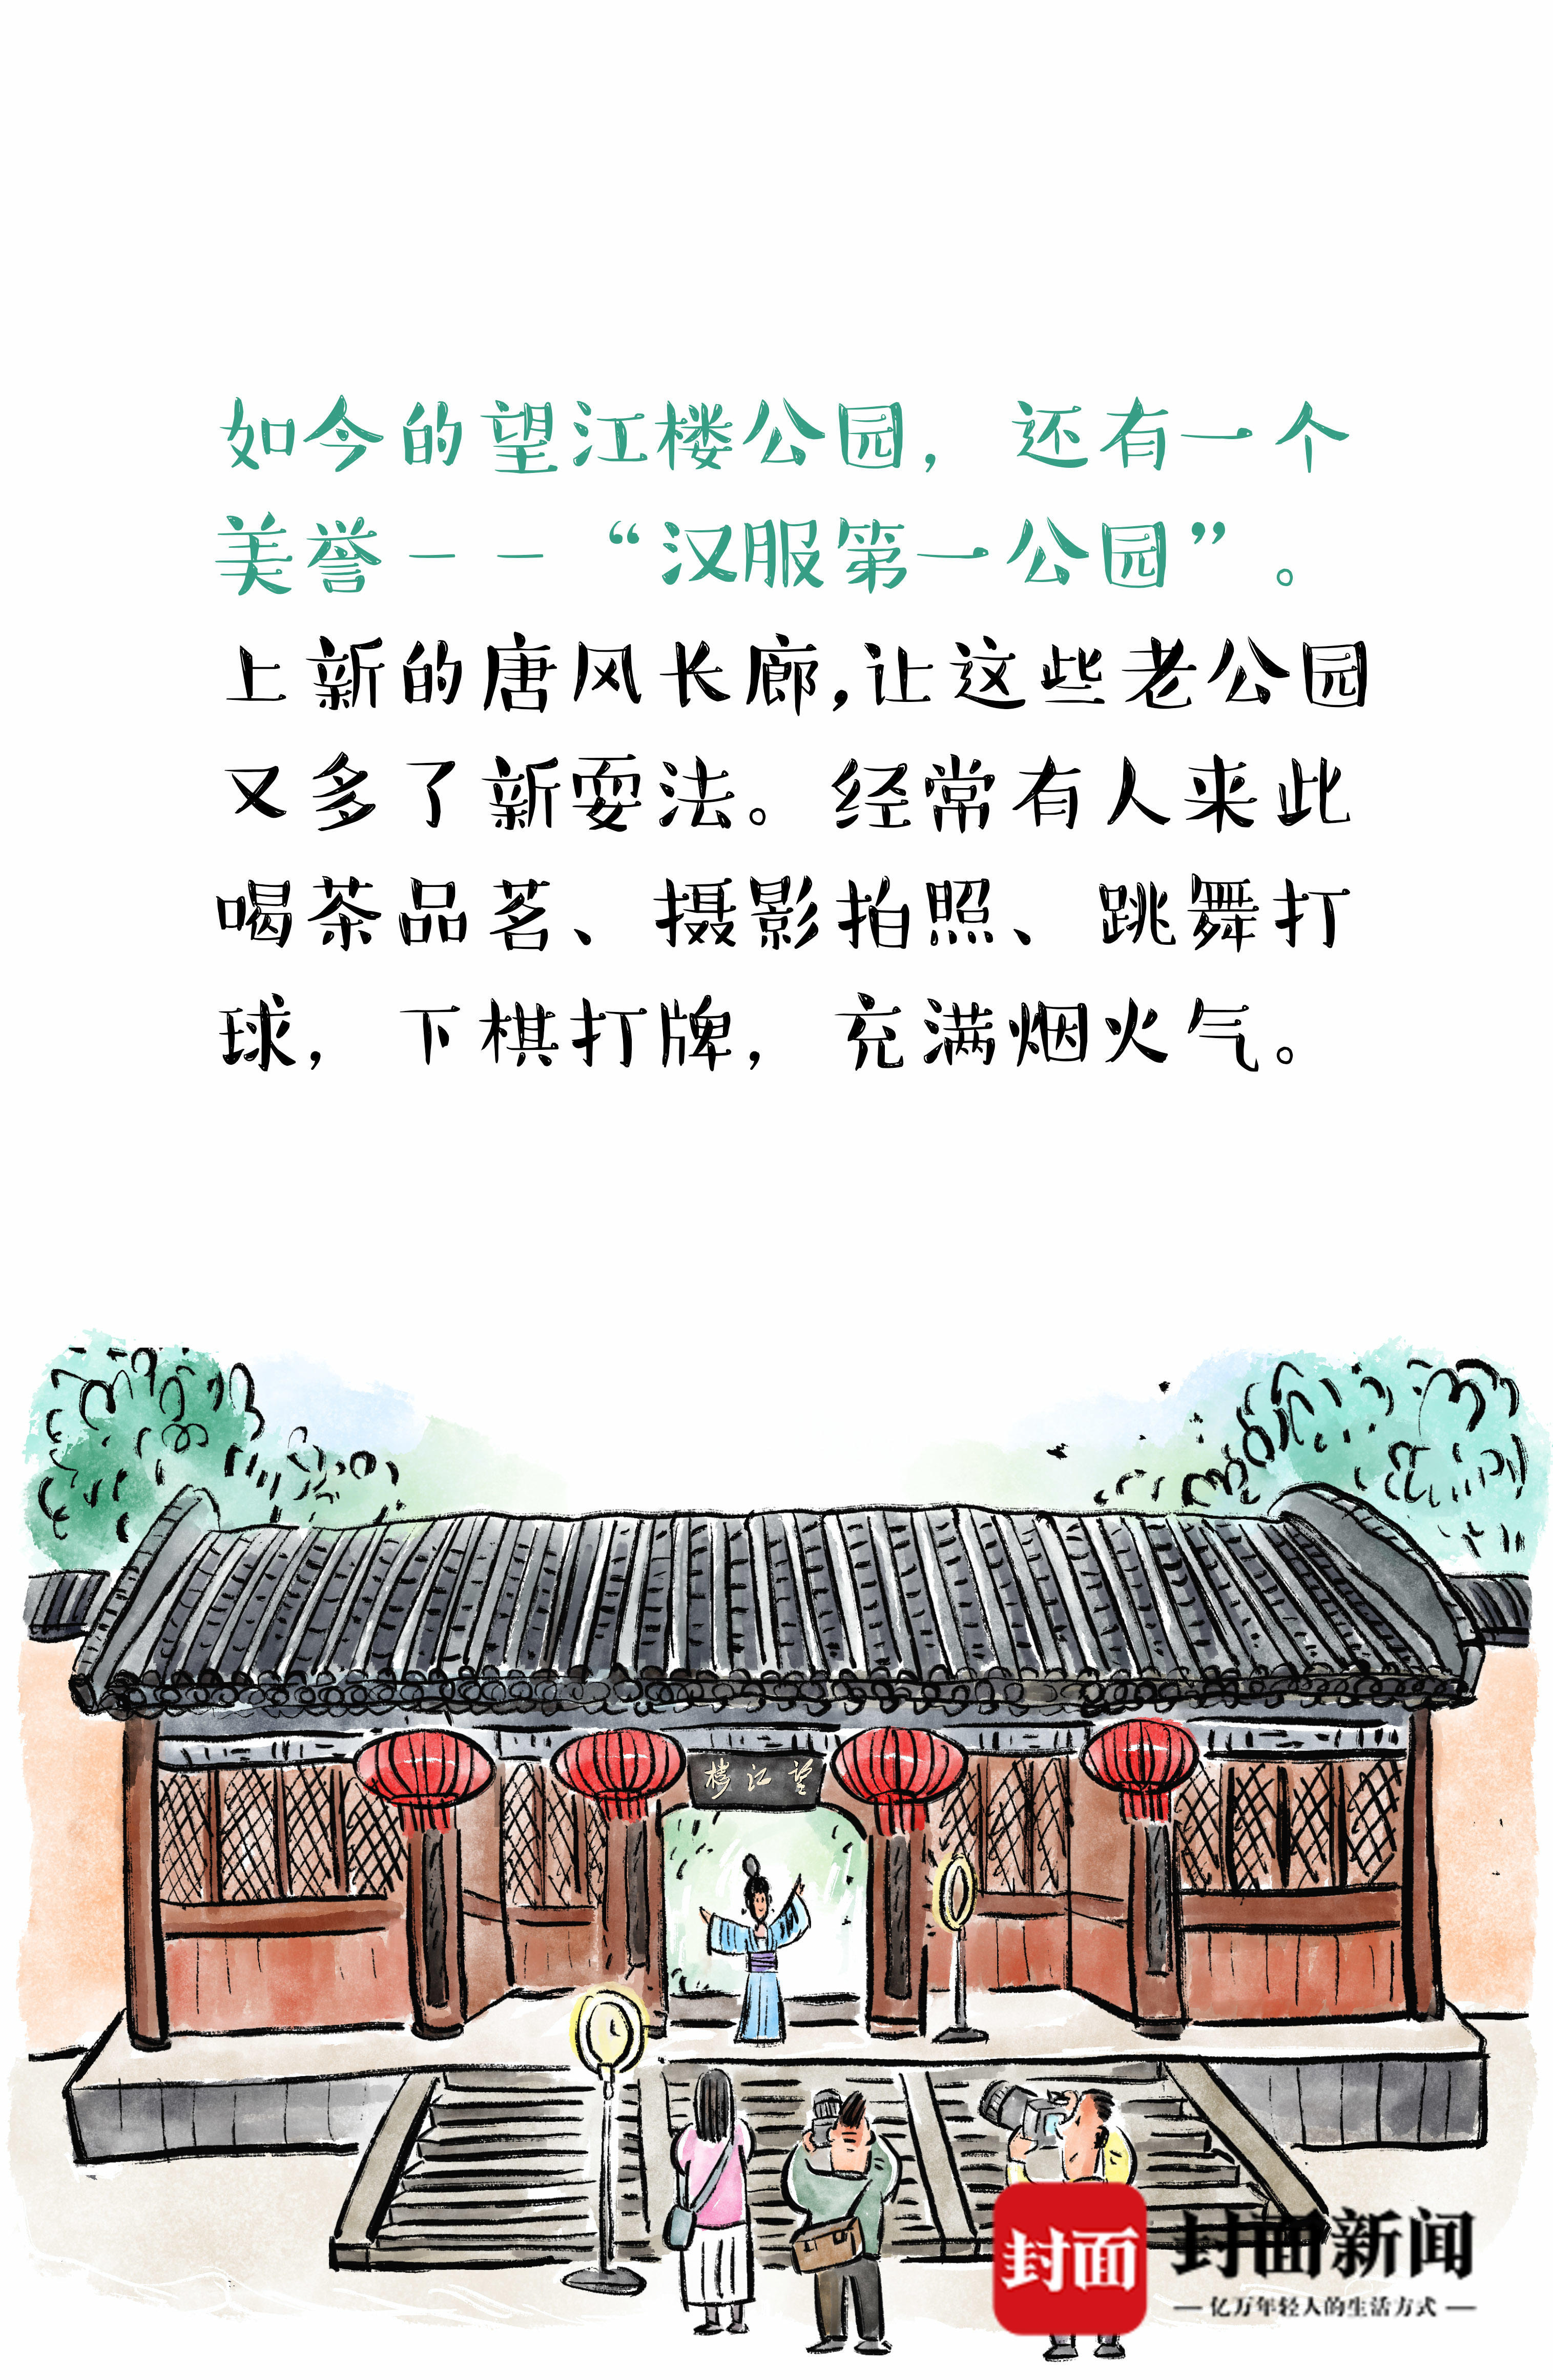 如今的望江楼公园，还有一个
美誉——“汉服第一公园”。
上新的唐风长廊,让这些老公园
又多了新耍法。经常有人来此
喝茶品茗、摄影拍照、跳舞打
球，下棋打牌，充满烟火气。
楼江望
封面
封面新闻
—亿万年轻人的生活方式—